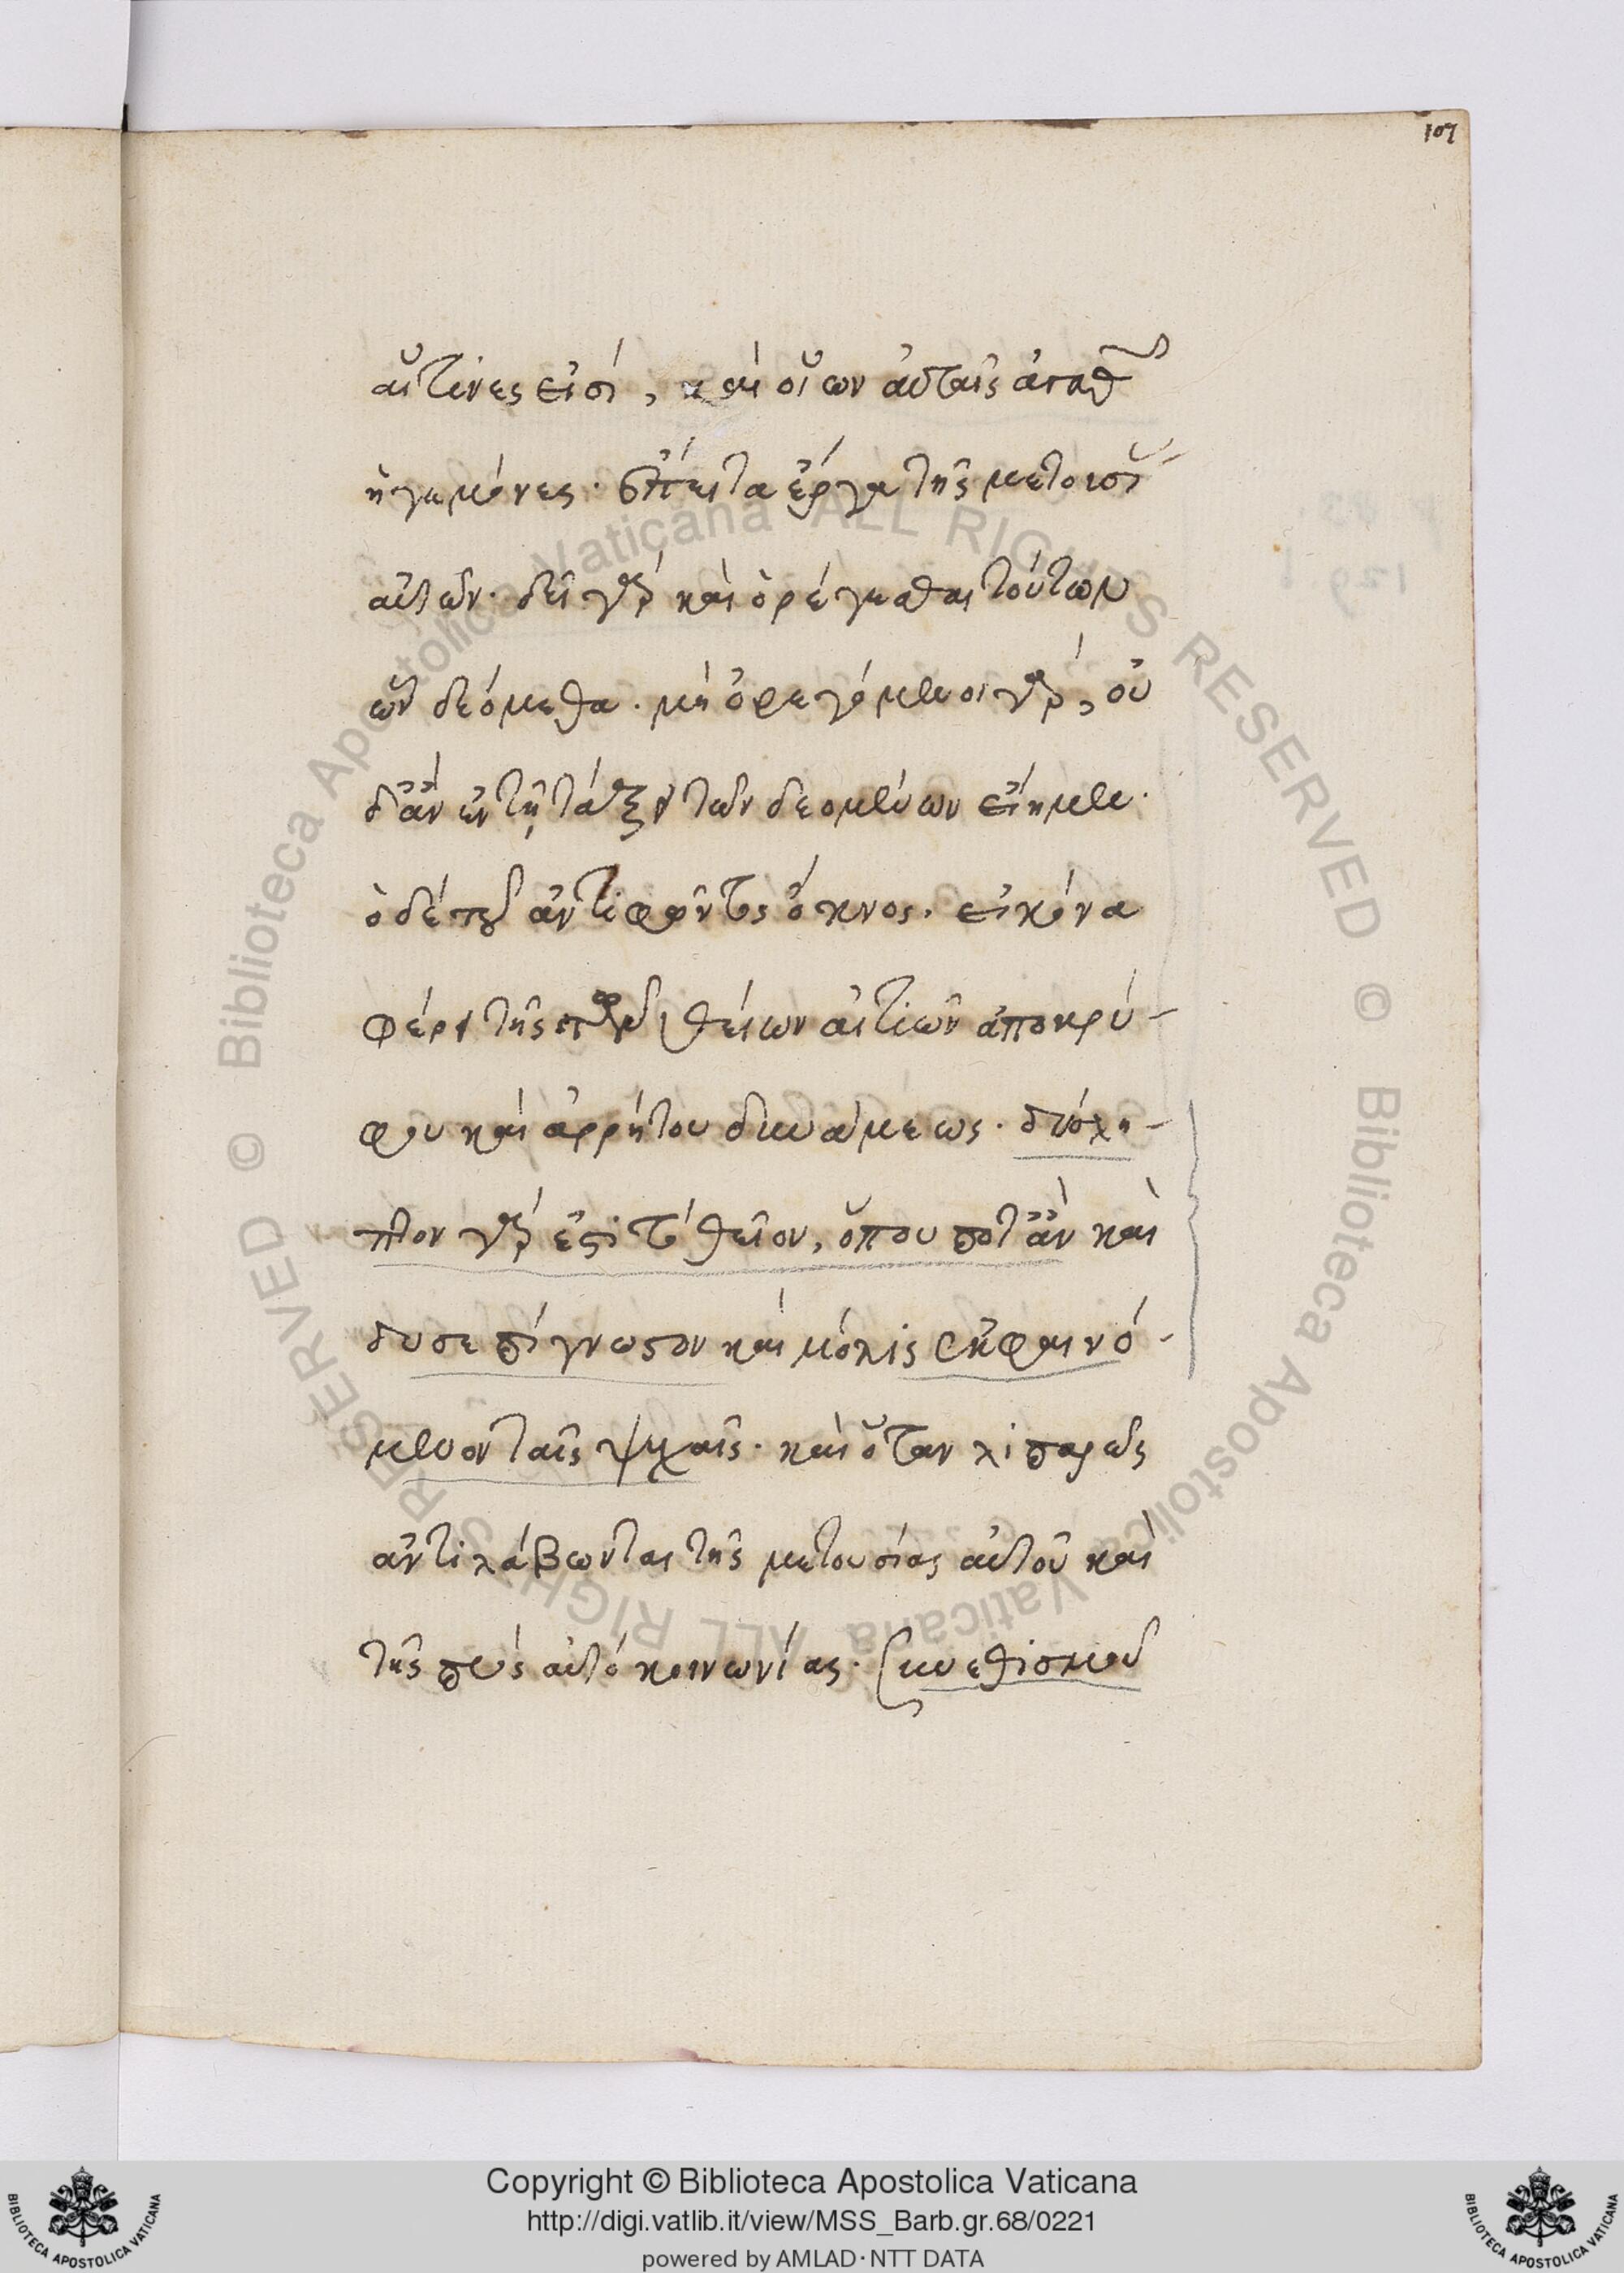 107
αἵτινες εἰσί, καὶ οἵων αὐταῖς ἀγαθῶν
ἡγεμόνες. ἔπειτα ἐρᾷν τῆς μετουσί
αὐτῶν. δεῖ γὰρ καὶ ὀρέγεσθαι τούτων
ὧν δεόμεθα. μὴ ὀρεγόμενοι γὰρ, οὐ
δ' ἂν ἐν τῇ τάξει τῶν δεομένων εἴημεν.
ὁ δὲ τοῦ ἀντιφῶντος ὄκνος. εἰκόνα
φέρει τῆς τῶν θείων αἰτίων ἀποκρύ-
φου καὶ ἀρρήτου δυνάμεως. δυόχη-
πτον γάρ ἐστι τὸ θεῖον, ὅπου ποτ' ἂν καὶ
δυσεπίγνωστον καὶ μόλις ἐκφαινό-
μενον ταῖς ψυχαῖς. καὶ ὅταν λιπαρῶς
ἀντιλάβωνται τῆς μετουσίας αὐτοῦ καὶ
τῆς πρὸς αὐτὸ κοινωνίας. συνεθισμοῦ
Copyright © Biblioteca Apostolica Vaticana
http://digi.vatlib.it/view/MSS_Barb.gr.68/0221
powered by AMLAD·NTT DATA
BIBLIOTECA APOSTOLICA VATICANA
BIBLIOTECA APOSTOLICA VATICANA
© Biblioteca Apostolica Vaticana ALL RIGHTS RESERVED © Biblioteca Apostolica Vaticana ALL RIGHTS RESERVED